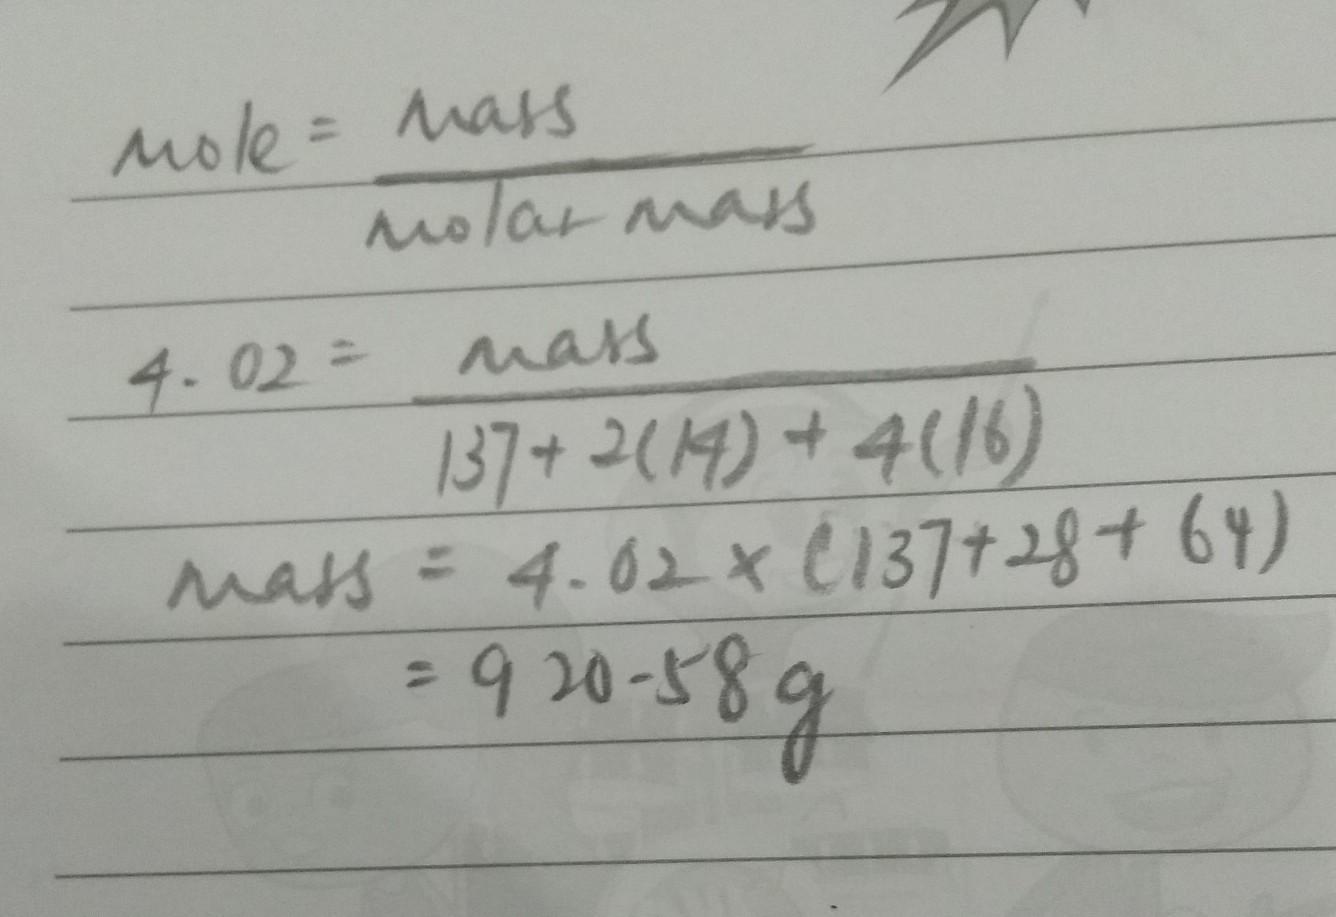 mole = mass
molar mass
4.02 = mass
137 + 2(14) + 4(16)
mass = 4.02 x (137+28+64)
= 920.58g